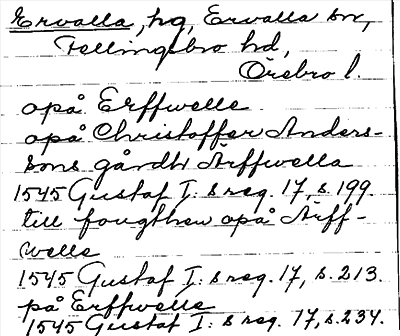 Ervalla, hg, Ervalla sn,
Fellingsbro hd,
Örebro l.
opå Erffwelle
opå Christoffer Anders-
sons gårdh Ärffwella
1545 Gustaf I: s reg. 17, s. 199.
till fougthen opå Ärff-
welle
1545 Gustaf I: s reg. 17, s. 213.
på Erffwelle
1545 Gustaf I: s reg. 17 s. 234.